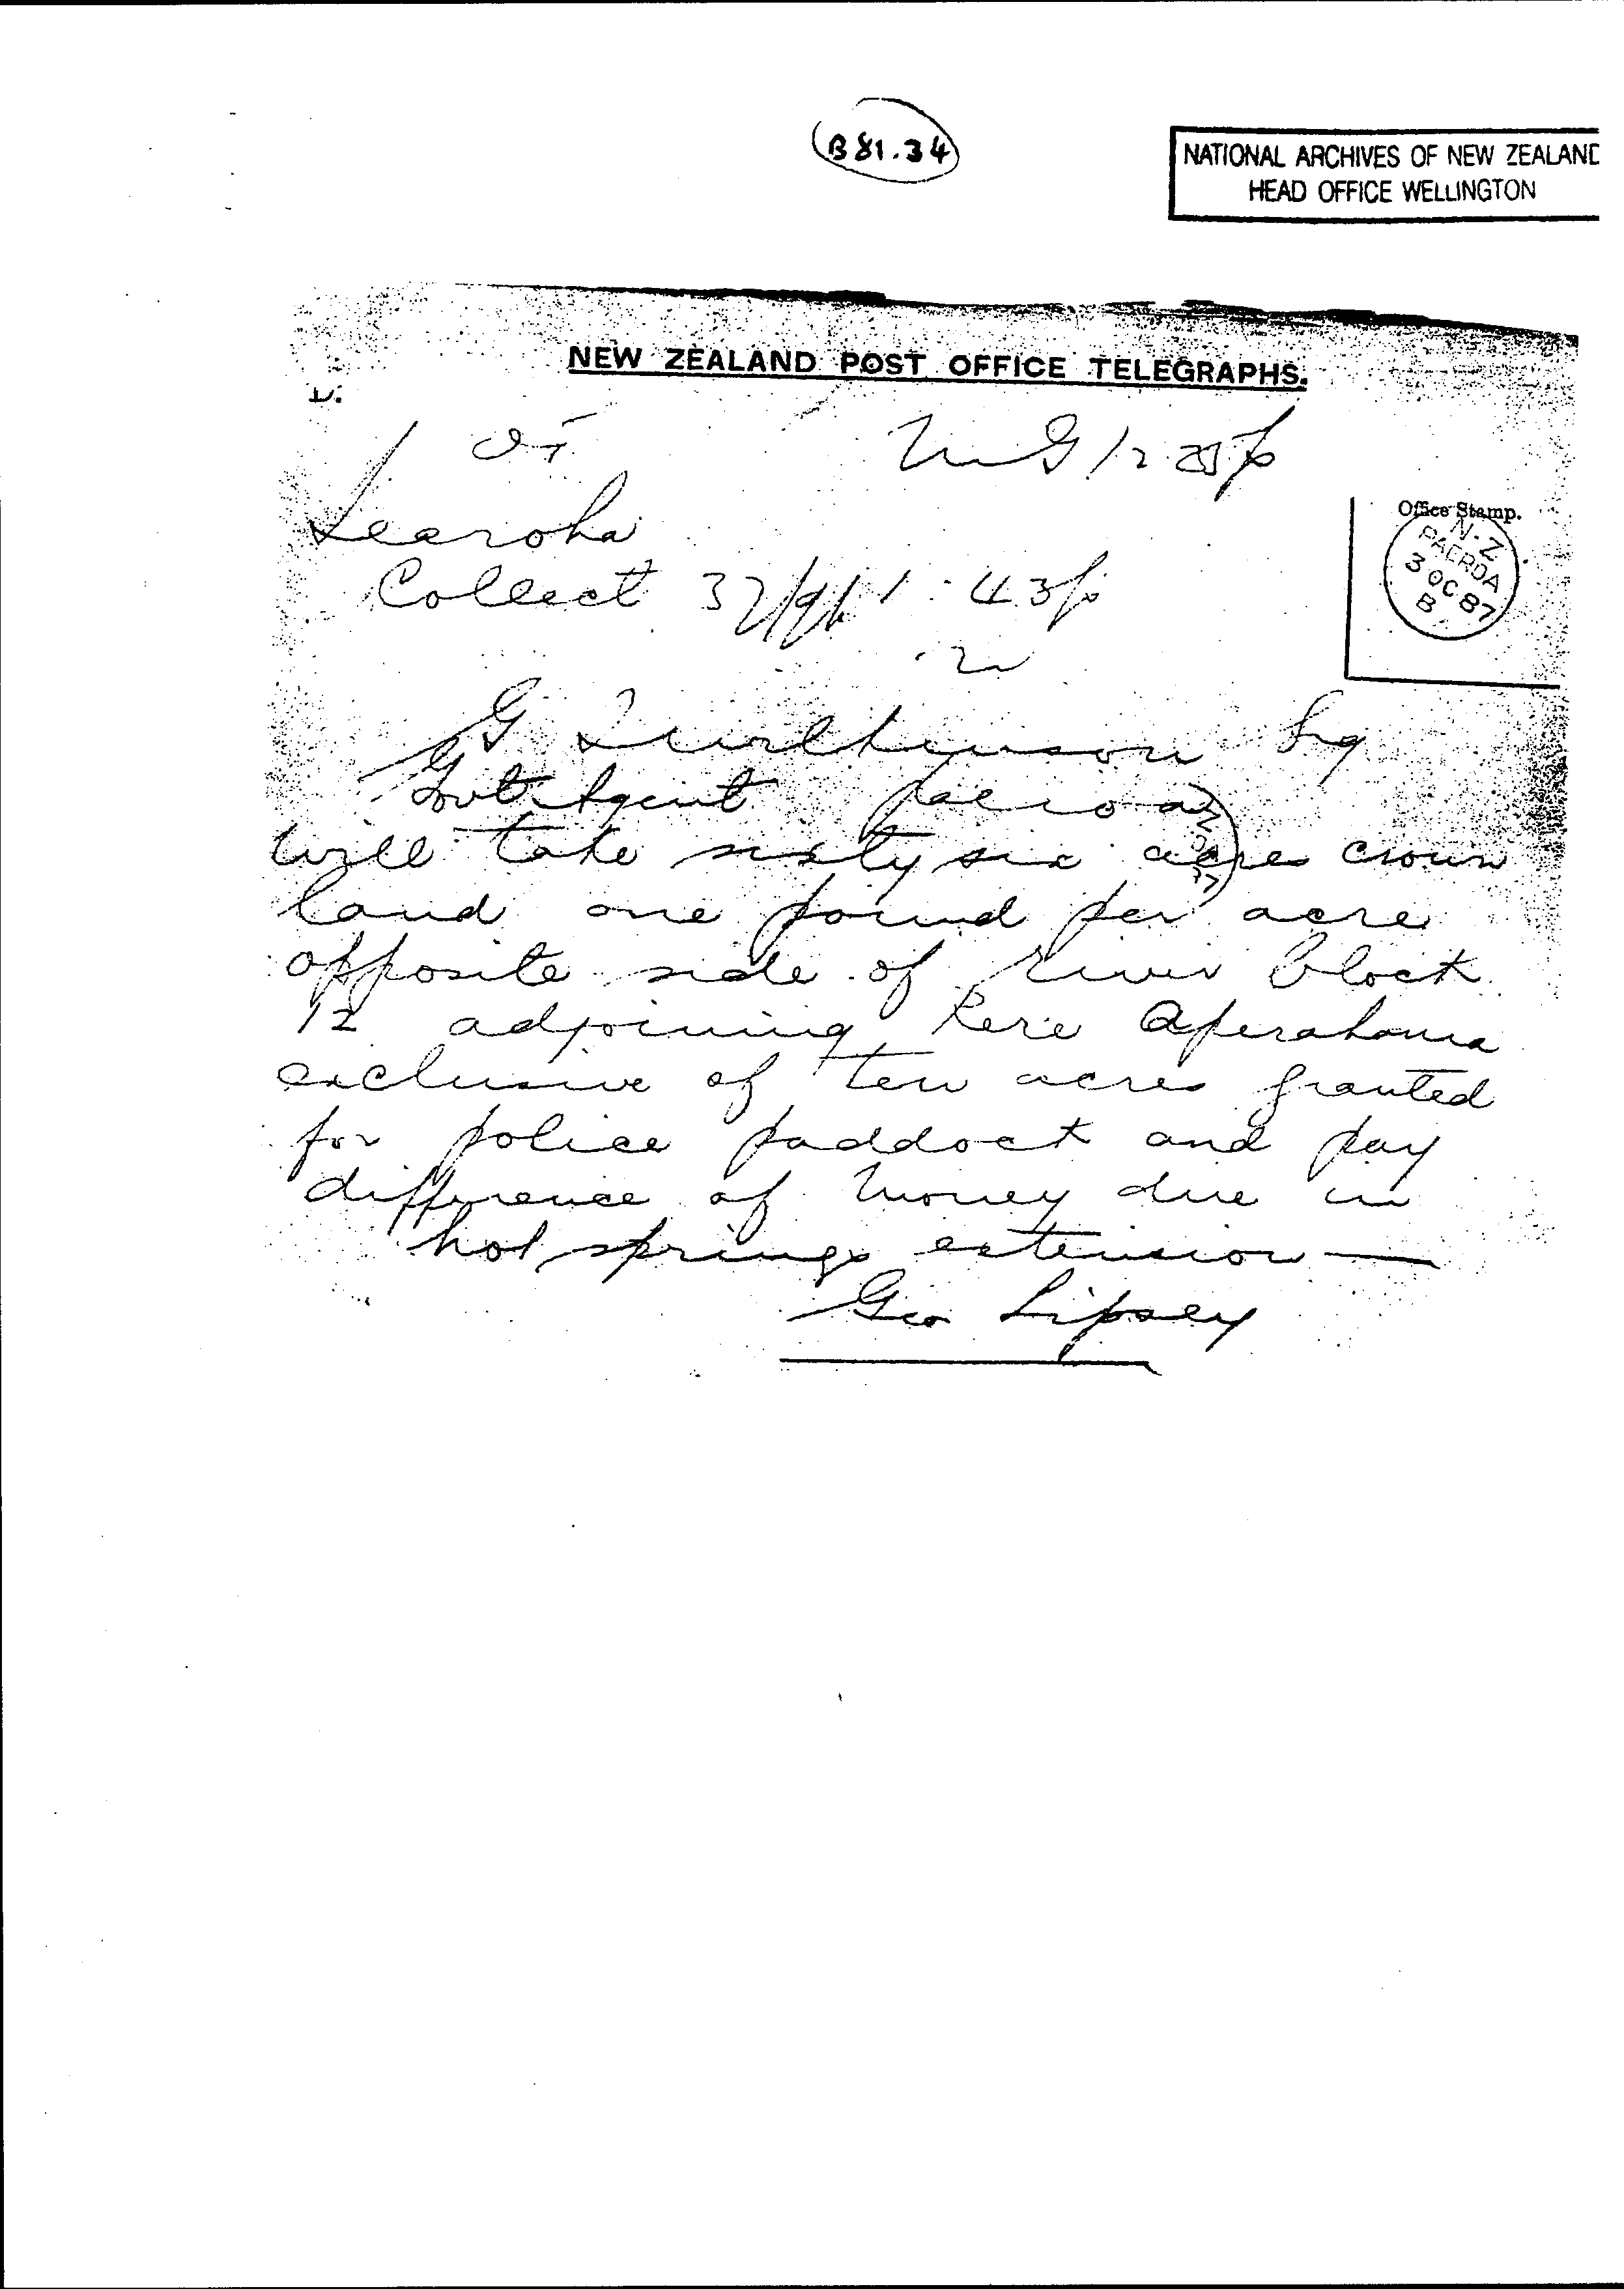 B 81.34
NATIONAL ARCHIVES OF NEW ZEALAND
HEAD OFFICE WELLINGTON
NEW ZEALAND POST OFFICE TELEGRAPHS.
Tearoha
Collect 1:43p
Office Stamp.
N.Z.
PAEROA
3 OC 87
B
G Esq
Govt Agent Paeroa
Will take sixty six acres crown
land one pound per acre
opposite side of river block
12 adjoining Rere Aperahama
exclusive of ten acres granted
for police paddock and pay
difference of money due in
hot springs extension —
Geo Lipsey